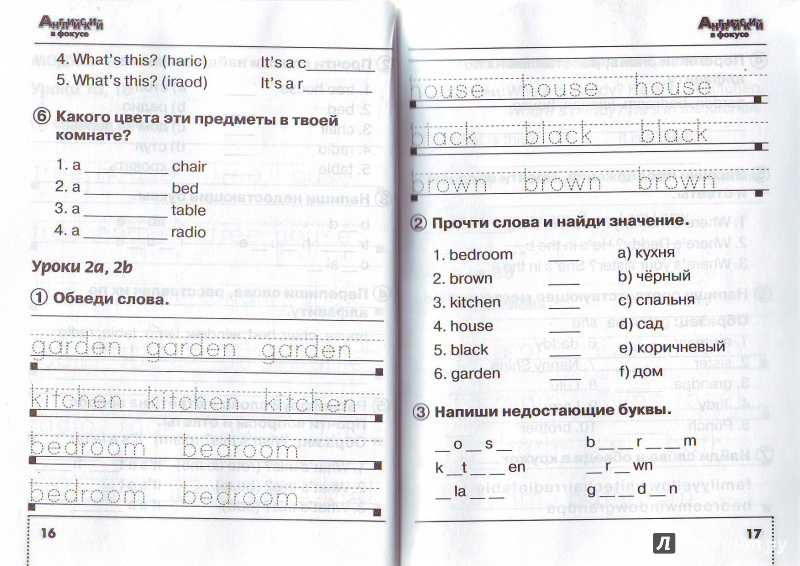 Английский
в фокусе
4. What's this? (haric) It's a c
5. What's this? (iraod) It's a r
6 Какого цвета эти предметы в твоей
комнате?
1. a ________ chair
2. a ________ bed
3. a ________ table
4. a ________ radio
Уроки 2a, 2b
1 Обведи слова.
garden garden garden
kitchen kitchen kitchen
bedroom bedroom
bedroom bedroom
16
Английский
в фокусе
house house house
black black black
brown brown brown
2 Прочти слова и найди значение.
1. bedroom ____ a) кухня
2. brown ____ b) чёрный
3. kitchen ____ c) спальня
4. house ____ d) сад
5. black ____ e) коричневый
6. garden ____ f) дом
3 Напиши недостающие буквы.
_ o _ s _ b _ _ r _ _ m
k _ t _ _ en _ r _ wn
_ la _ _ g _ _ d _ n
17